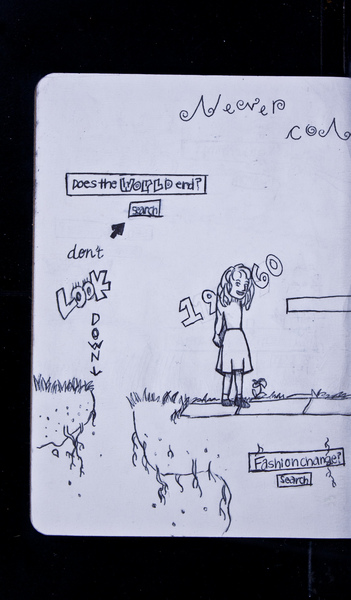 Never
con
Does the WORLD end?
search
don't
LOOK
DOWN
1960
Fashion change?
search